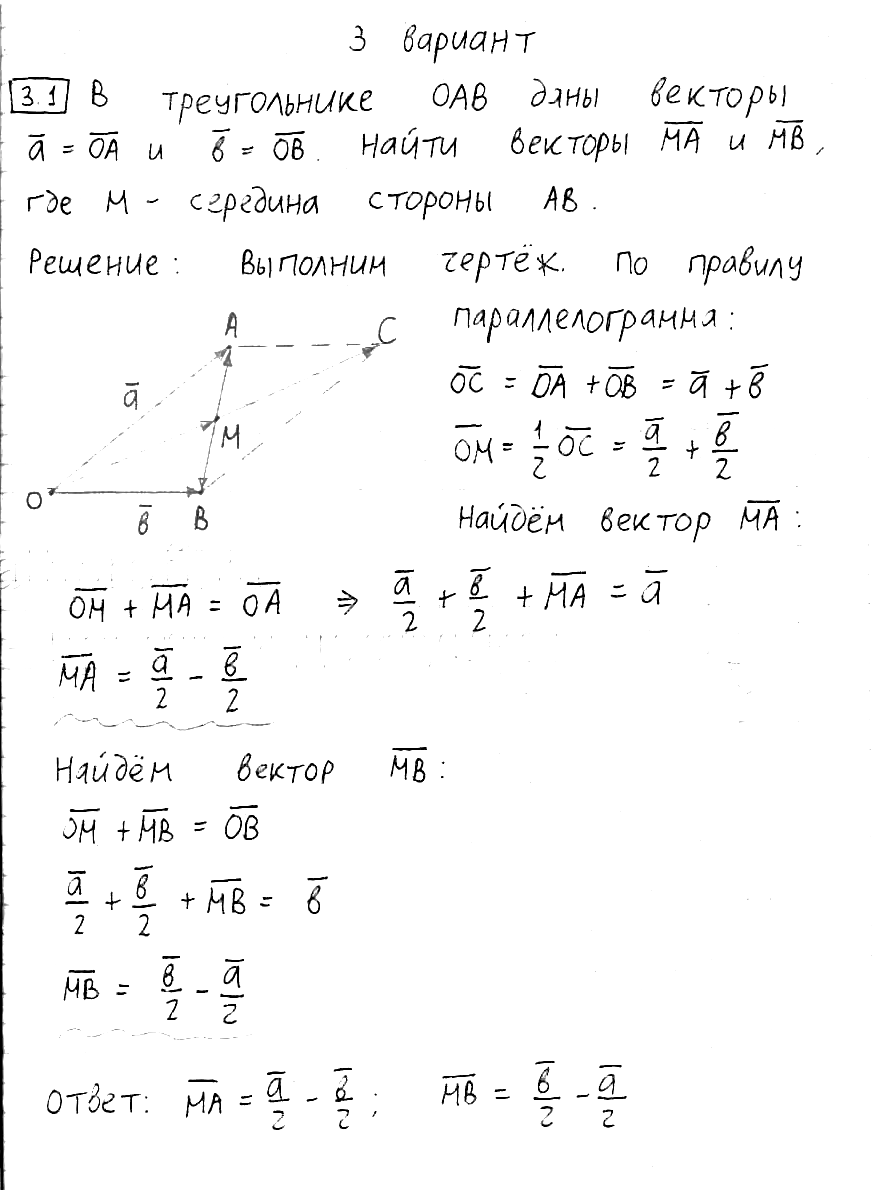 3 вариант
3.1 В треугольнике ОАВ даны векторы
a̅ = O̅A̅ и в̅ = O̅B̅. Найти векторы M̅A̅ и M̅B̅,
где М - середина стороны АВ.
Решение: Выполним чертёж. По правилу
параллелограмма:
A
C
O̅C̅ = O̅A̅ + O̅B̅ = a̅ + в̅
a̅
M
O̅M̅ = 1/2 O̅C̅ = a̅/2 + в̅/2
O
в̅
B
Найдём вектор M̅A̅:
O̅M̅ + M̅A̅ = O̅A̅ ⇒ a̅/2 + в̅/2 + M̅A̅ = a̅
M̅A̅ = a̅/2 - в̅/2
Найдём вектор M̅B̅:
O̅M̅ + M̅B̅ = O̅B̅
a̅/2 + в̅/2 + M̅B̅ = в̅
M̅B̅ = в̅/2 - a̅/2
Ответ: M̅A̅ = a̅/2 - в̅/2; M̅B̅ = в̅/2 - a̅/2